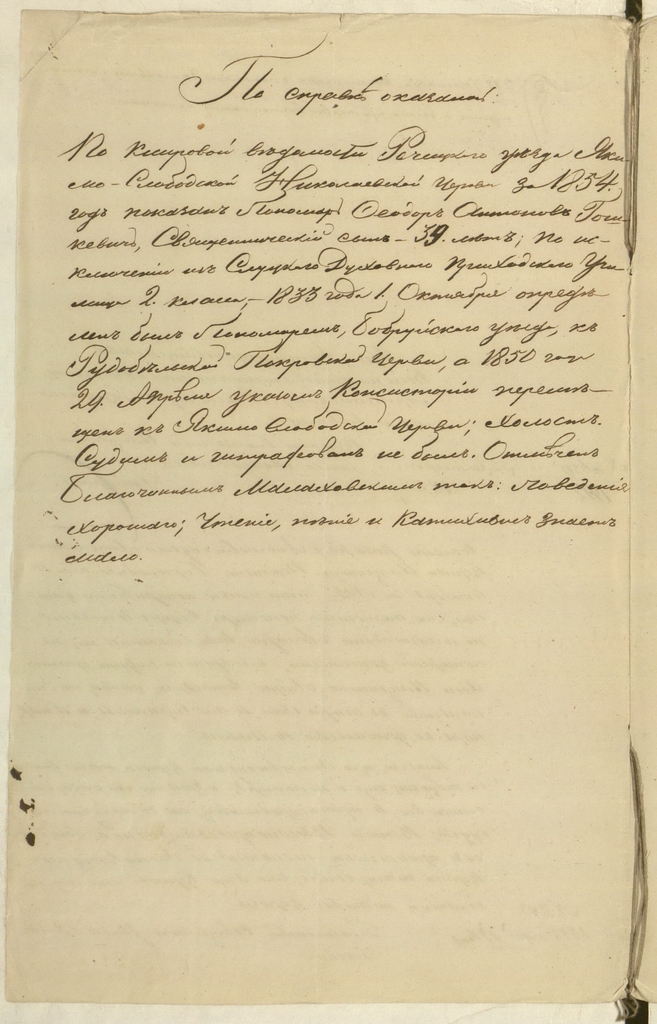 По справкѣ оказалось:
По клировой вѣдомости Рѣчицкаго уѣзда Яки-
мо-Слободской Николаевской Церкви за 1854.
годъ показанъ Пономарь Ѳеодоръ Антоновъ Гош-
кевичъ, Священническій сынъ – 39. лѣтъ; по ис-
ключеніи изъ Слуцкаго Духовнаго Приходскаго Учи-
лища 2. класса, – 1833 года 1. Октября опредѣ-
ленъ былъ Пономаремъ, Бобруйскаго уѣзда, къ
Рудобѣльской Покровской Церкви, а 1850 года
29. Апрѣля указомъ Консисторіи перемѣ-
щенъ къ Якимо Слободской Церкви; холостъ.
Судимъ и штрафованъ не былъ. Отмѣченъ
Благочиннымъ Малаховскимъ такъ: поведенія
хорошаго; Чтеніе, пѣніе и Катихизисъ знаетъ
мало.